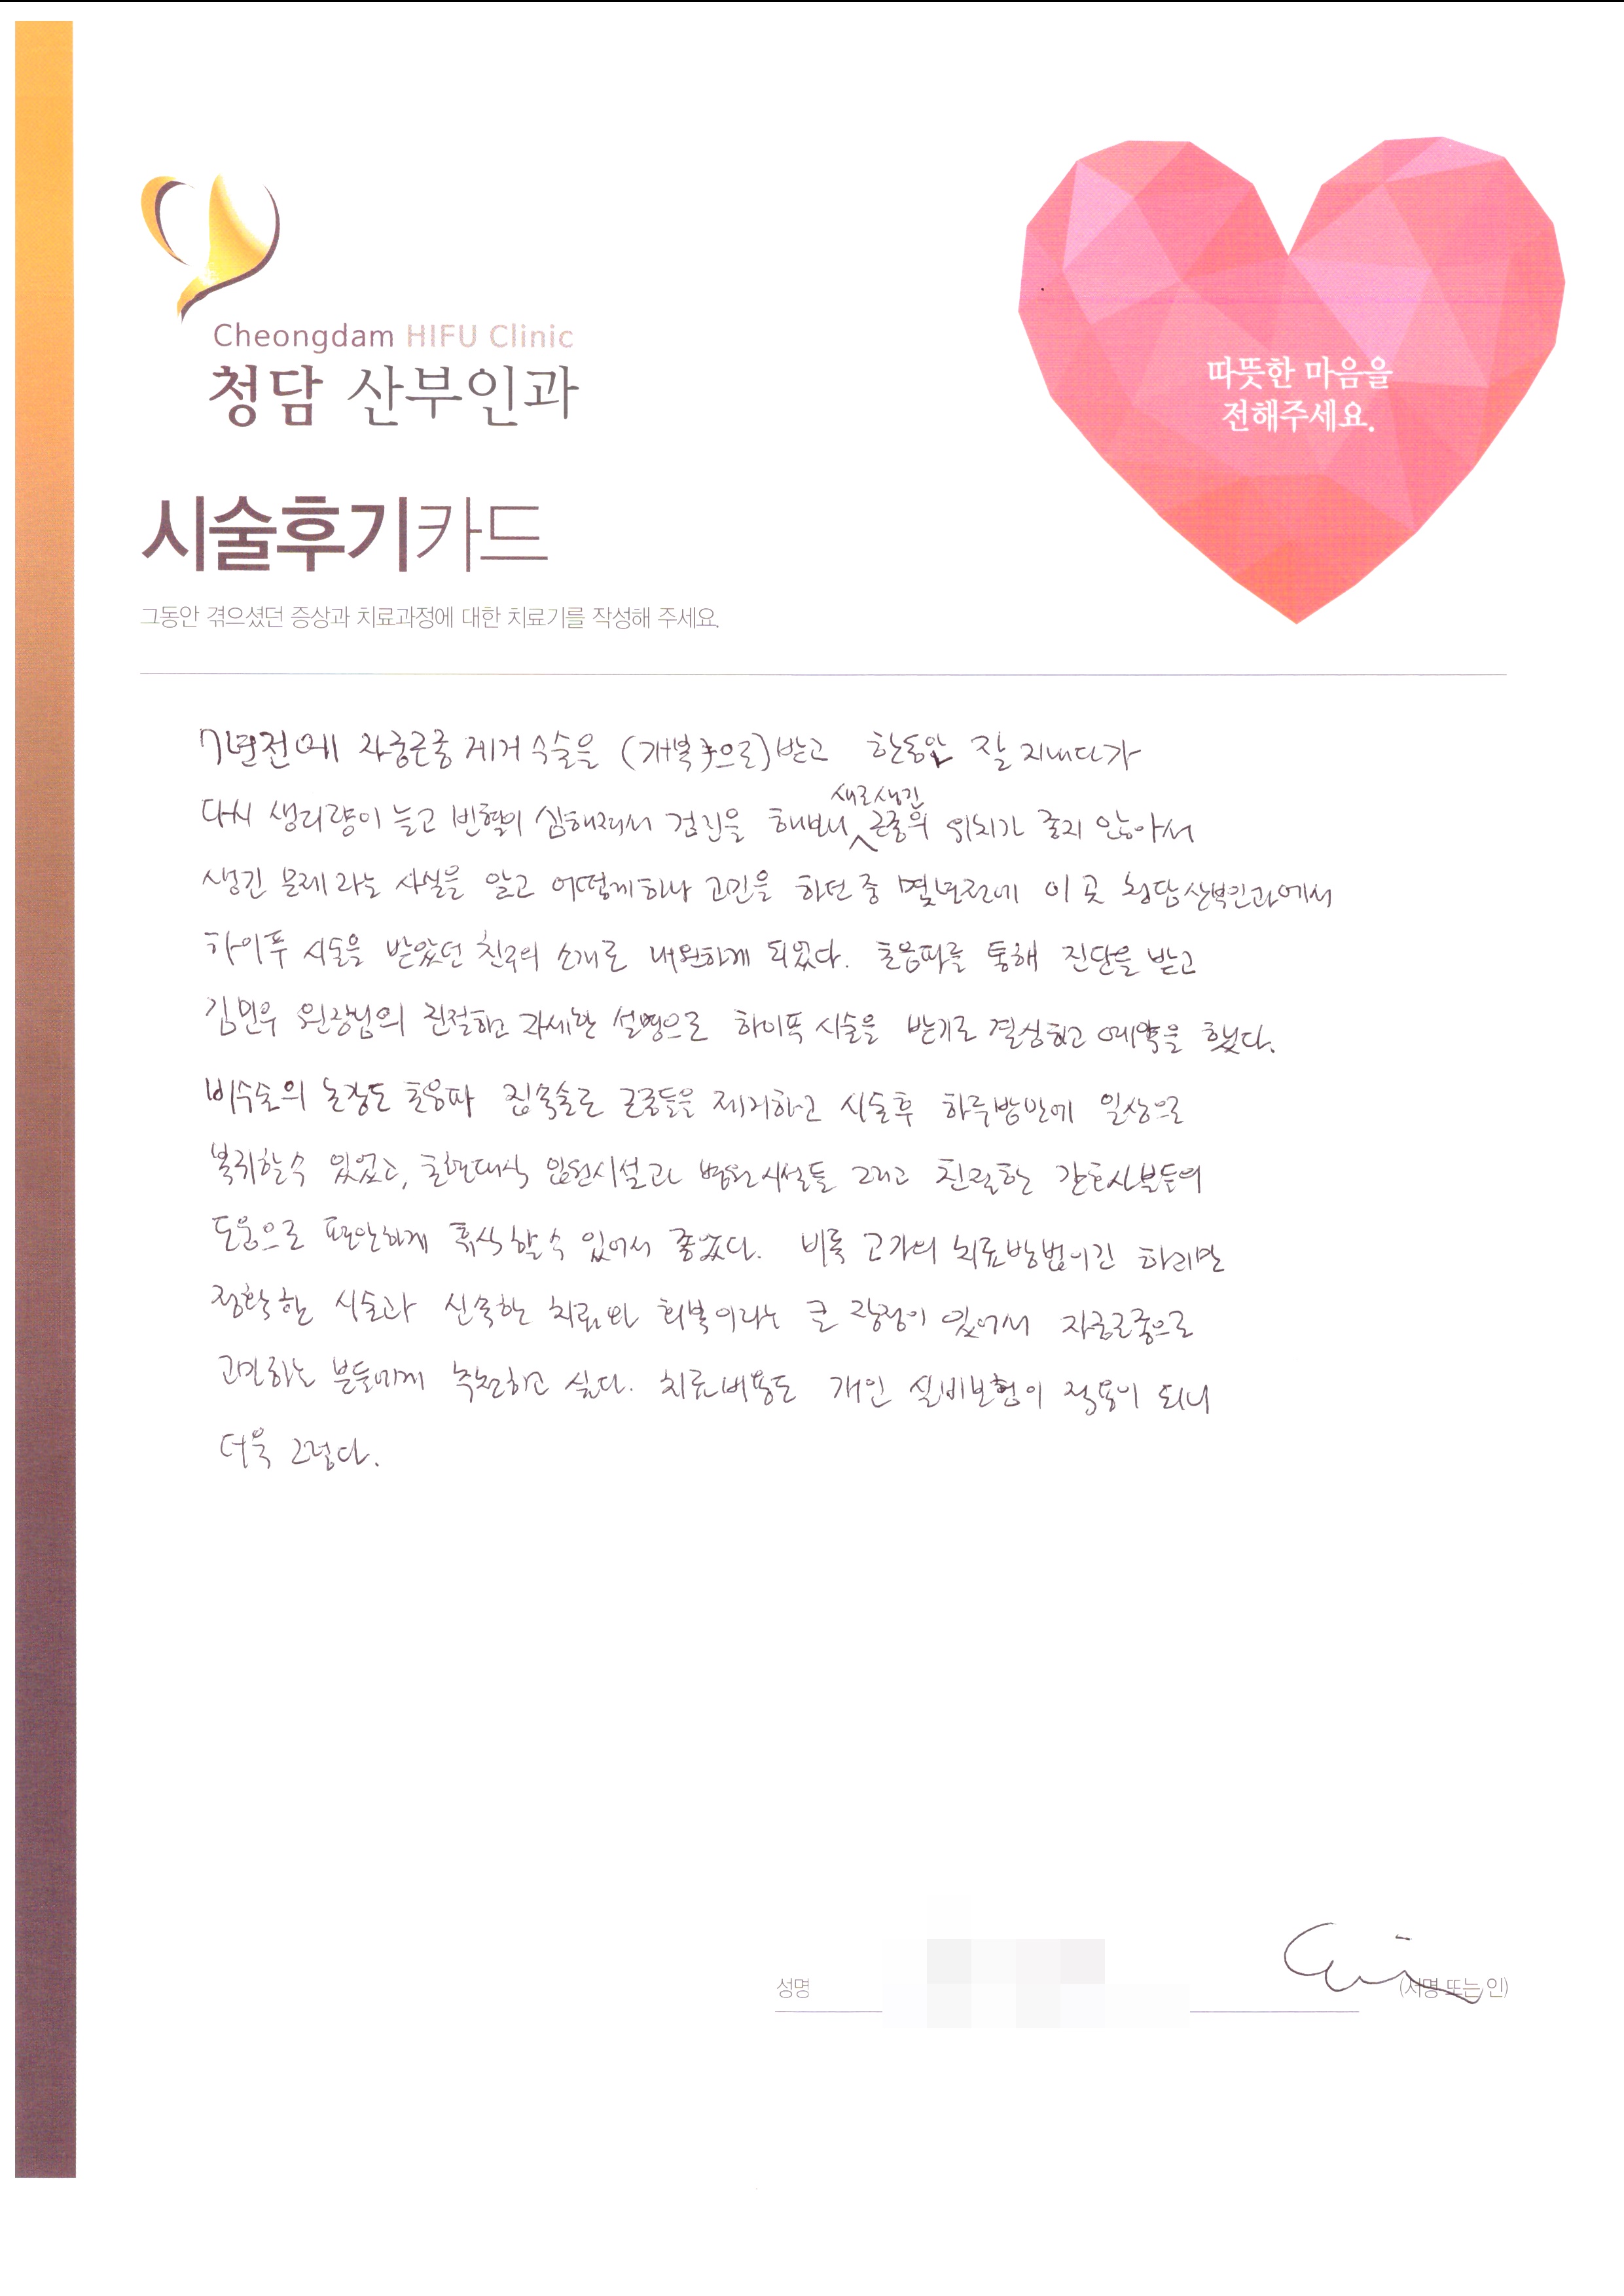 Cheongdam HIFU Clinic
청담 산부인과
따뜻한 마음을
전해주세요.
시술후기카드
그동안 겪으셨던 증상과 치료과정에 대한 치료기를 작성해 주세요.
7년전에 자궁근종 제거 수술을 (개복 으로) 받고 한동안 잘 지내다가
다시 생리량이 늘고 빈혈이 심해져서 검진을 해보니 새로생긴 근종의 위치가 좋지 않아서
생긴 문제 라는 사실을 알고 어떻게 하나 고민을 하던 중 몇년전에 이 곳 청담산부인과에서
하이푸 시술을 받았던 친구의 소개로 내원하게 되었다. 초음파를 통해 진단을 받고
김민우 원장님의 친절하고 자세한 설명으로 하이푸 시술을 받기로 결심하고 예약을 했다.
비수술의 고강도 초음파 집속술로 근종들을 제거하고 시술후 하루방만에 일상으로
복귀할수 있었고, 초현대식 입원시설과 병원시설들 그리고 친절한 간호사분들의
도움으로 편안하게 휴식할수 있어서 좋았다. 비록 고가의 치료방법이긴 하지만
정확한 시술과 신속한 치료와 회복이라는 큰 장점이 있어서 자궁근종으로
고민하는 분들에게 추천하고 싶다. 치료비용도 개인 실비보험이 적용이 되니
더욱 그렇다.
성명 (서명 또는 인)